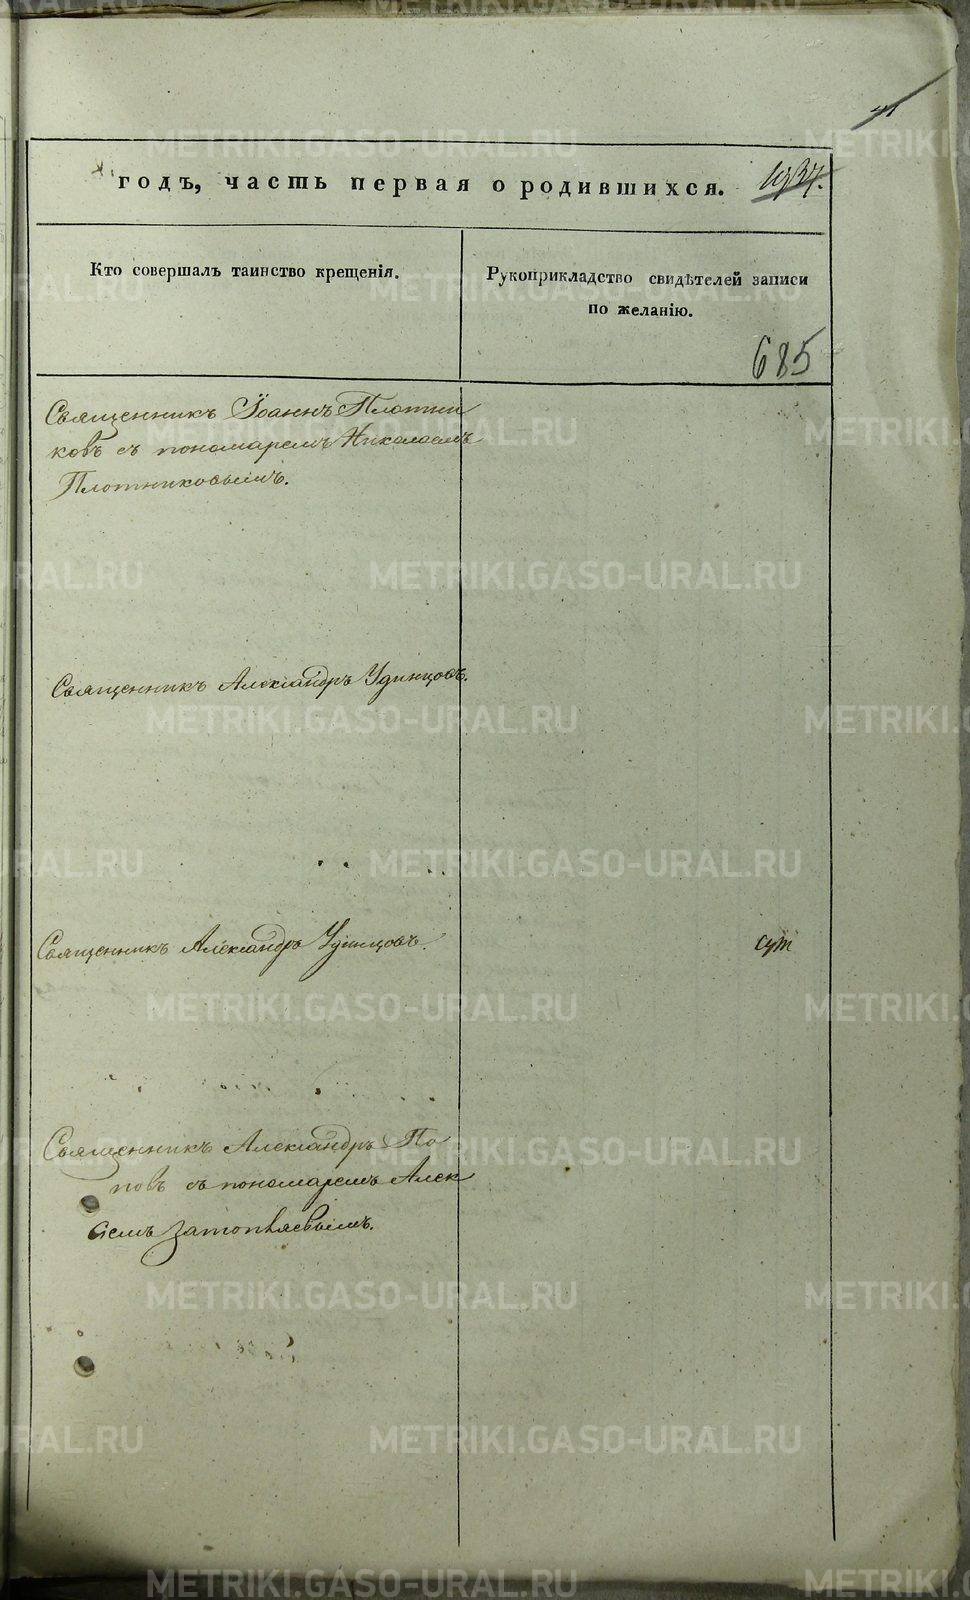 годъ, часть первая о родившихся.
Кто совершалъ таинство крещенія.
Рукоприкладство свидѣтелей записи
по желанію.
685
Священникъ Іоаннъ Плотни
ковъ съ пономаремъ Николаемъ
Плотниковымъ.
Священникъ Александръ Удинцовъ.
Священникъ Александръ Удинцовъ.
Священникъ Александръ По
повъ съ пономаремъ Алек
сѣемъ
METRIKI.GASO-URAL.RU